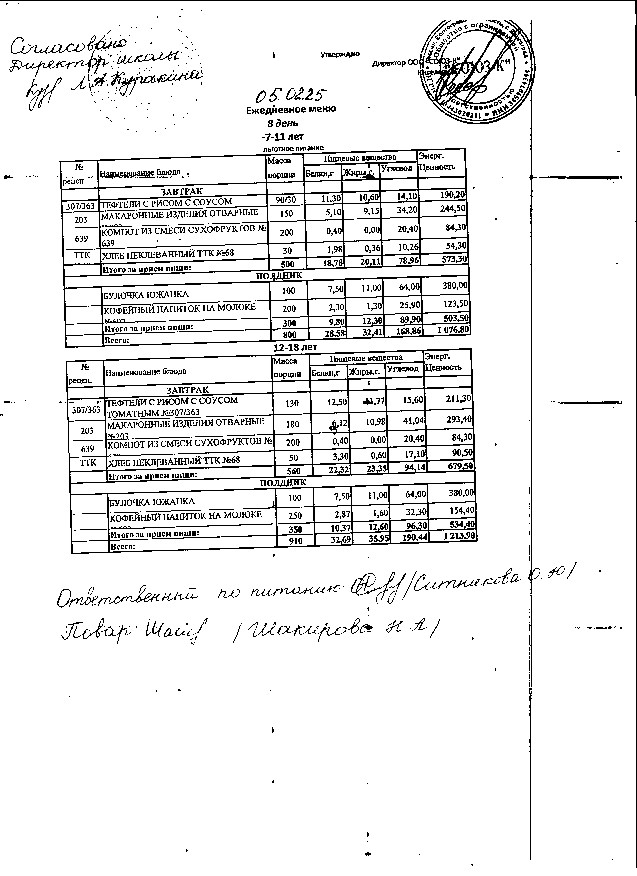 Согласовано
Директор школы
Л.А.Куракина
Утверждаю
Директор ООО "СОЮЗ-К"
05.02.25
Ежедневное меню
8 день
-7-11 лет
льготное питание
№ рецеп. Наименование блюда Масса порции Пищевые вещества Энерг. Ценность
Белки,г Жиры,г. Углевод
ЗАВТРАК
307/363 ТЕФТЕЛИ С РИСОМ С СОУСОМ 90/30 11,30 10,60 14,10 190,20
203 МАКАРОННЫЕ ИЗДЕЛИЯ ОТВАРНЫЕ 150 5,10 9,15 34,20 244,50
639 КОМПОТ ИЗ СМЕСИ СУХОФРУКТОВ № 639 200 0,40 0,00 20,40 84,30
ТТК ХЛЕБ ПЕКЛЕВАННЫЙ ТТК №68 30 1,98 0,36 10,26 54,30
Итого за прием пищи: 500 18,78 20,11 78,96 573,30
ПОЛДНИК
БУЛОЧКА ЮЖАНКА 100 7,50 11,00 64,00 380,00
КОФЕЙНЫЙ НАПИТОК НА МОЛОКЕ 200 2,30 1,30 25,90 123,50
Итого за прием пищи: 300 9,80 12,30 89,90 503,50
Всего: 800 28,58 32,41 168,86 1 076,80
12-18 лет
№ рецеп. Наименование блюда Масса порции Пищевые вещества Энерг. Ценность
Белки,г Жиры,г. Углевод
ЗАВТРАК
307/363 ТЕФТЕЛИ С РИСОМ С СОУСОМ ТОМАТНЫМ №307/363 130 12,50 11,77 15,60 211,30
203 МАКАРОННЫЕ ИЗДЕЛИЯ ОТВАРНЫЕ №203 180 6,12 10,98 41,04 293,40
639 КОМПОТ ИЗ СМЕСИ СУХОФРУКТОВ № 200 0,40 0,00 20,40 84,30
ТТК ХЛЕБ ПЕКЛЕВАННЫЙ ТТК №68 50 3,30 0,60 17,10 90,50
Итого за прием пищи: 560 22,32 23,35 94,14 679,50
ПОЛДНИК
БУЛОЧКА ЮЖАНКА 100 7,50 11,00 64,00 380,00
КОФЕЙНЫЙ НАПИТОК НА МОЛОКЕ 250 2,87 1,60 32,30 154,40
Итого за прием пищи: 350 10,37 12,60 96,30 534,40
Всего: 910 32,69 35,95 190,44 1 213,90
Ответственный по питанию /Ситникова О.Ю/
Повар /Шакирова Н А/